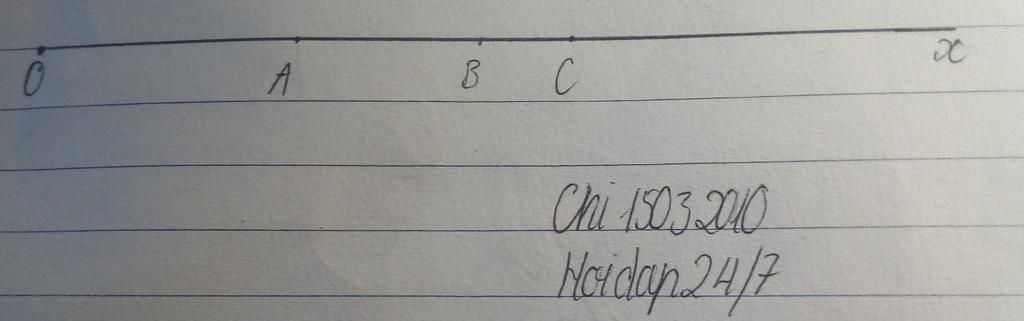 O A B C x
Chi 15032010
Hoidap24/7